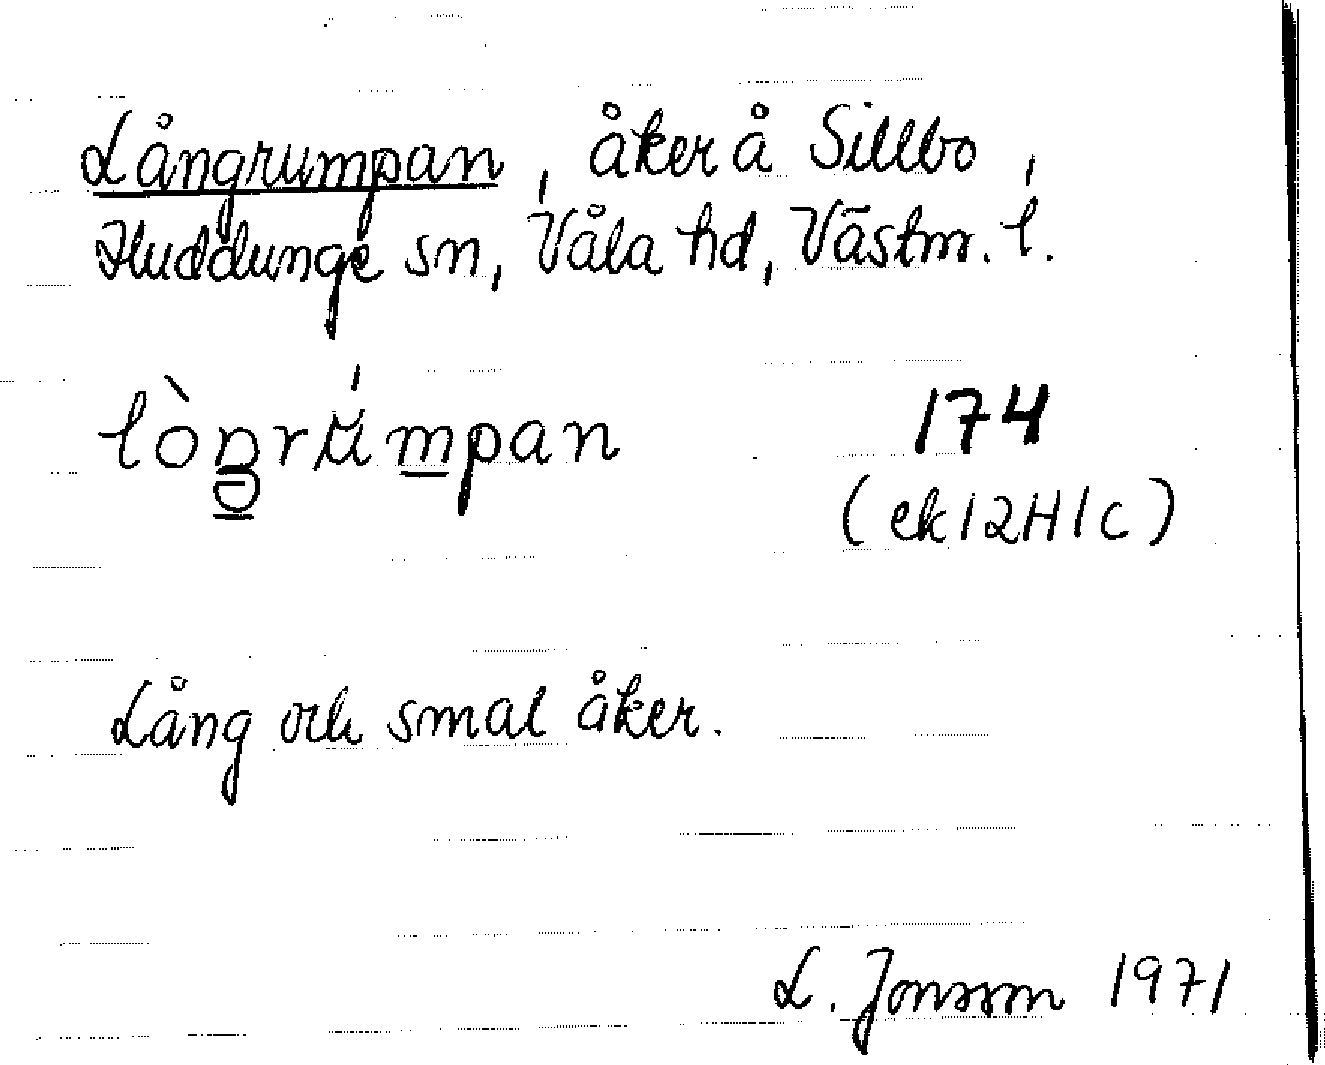 Långrumpan, åker å Sillbo,
Huddunge sn, Våla hd, Västm. l.
174
(ek12H1c)
Lång och smal åker.
L. Jonsson 1971